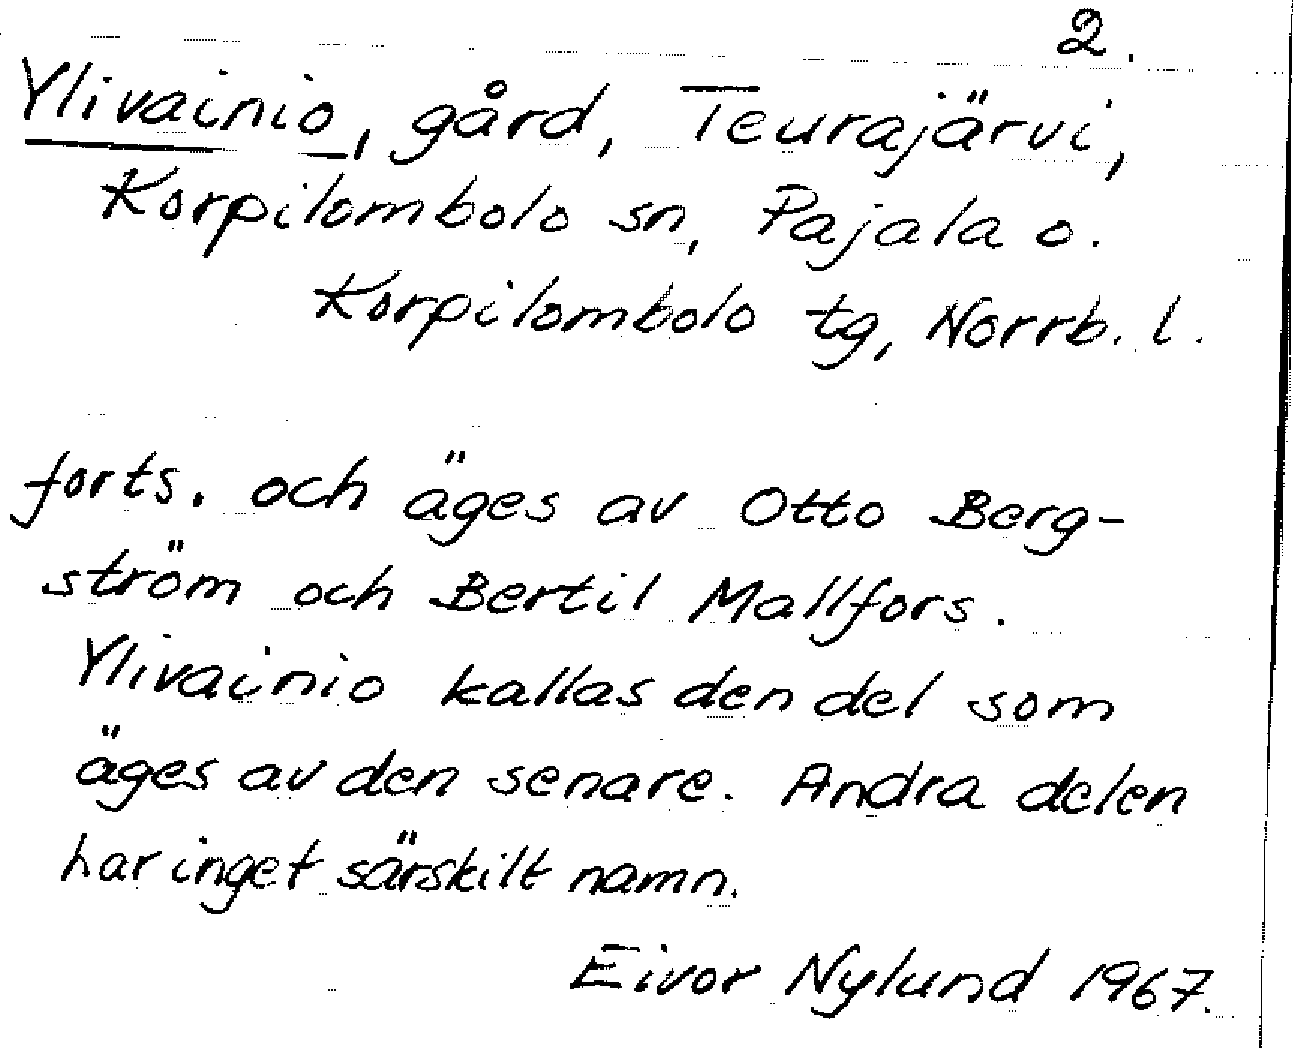 2.
Ylivainio, gård, Teurajärvi,
Korpilombolo sn, Pajala o.
Korpilombolo tg, Norrb. l.
forts. och äges av Otto Berg-
ström och Bertil Mallfors.
Ylivainio kallas den del som
äges av den senare. Andra delen
har inget särskilt namn.
Eivor Nylund 1967.